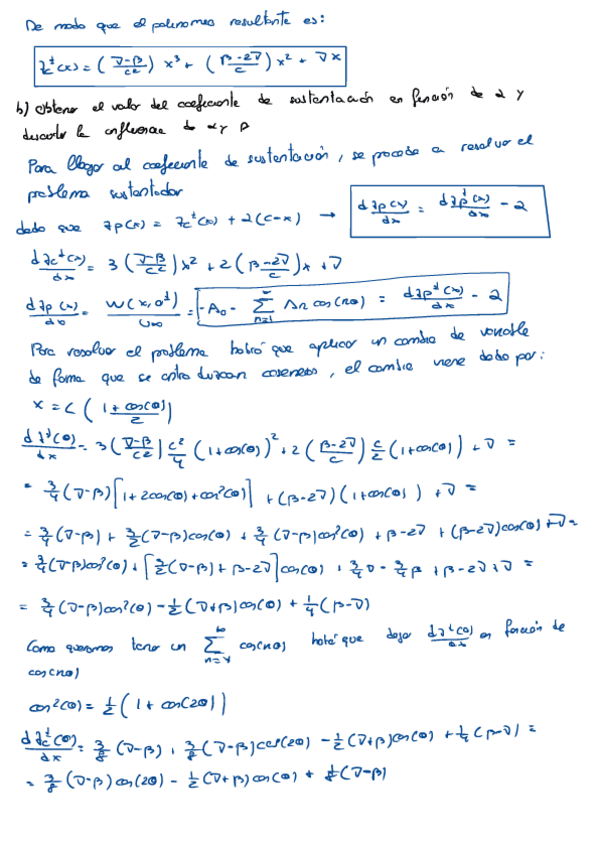 De modo que el polinomio resultante es:
z_c^d(x) = (∇-β / c²) x³ + (β-2∇ / c) x² + ∇x
b) Obtener el valor del coeficiente de sustentación en función de α y
describir la influencia de α y β
Para llegar al coeficiente de sustentación, se procede a resolver el
problema sustentador
dado que zp(x) = z_c^d(x) + α(c-x) → dzp(x)/dx = dz_p^d(x)/dx - α
dz_c^d(x)/dx = 3(∇-β / c²)x² + 2(β-2∇ / c)x + ∇
dzp(x)/dx = W(x,0^±)/U∞ = -A₀ - Σ_{n=1}^{∞} An cos(nθ) = dz_p^d(x)/dx - α
Para resolver el problema habrá que aplicar un cambio de variable
de forma que se introduzcan cosenos, el cambio viene dado por:
x = c(1+cos(θ) / 2)
dz^d(θ)/dx = 3(∇-β / c²) c²/4 (1+cos(θ))² + 2(β-2∇ / c) c/2 (1+cos(θ)) + ∇ =
= 3/4 (∇-β)[1+2cos(θ)+cos²(θ)] + (β-2∇)(1+cos(θ)) + ∇ =
= 3/4(∇-β) + 3/2(∇-β)cos(θ) + 3/4(∇-β)cos²(θ) + β-2∇ + (β-2∇)cos(θ) + ∇ =
= 3/4(∇-β)cos²(θ) + [3/2(∇-β) + β-2∇]cos(θ) + 3/4∇ - 3/4β + β-2∇+∇ =
= 3/4(∇-β)cos²(θ) - 1/2(∇+β)cos(θ) + 1/4(β-∇)
Como queremos tener un Σ_{n=1}^{∞} cos(nθ) habrá que dejar dz^d(θ)/dx en función de
cos(nθ)
cos²(θ) = 1/2(1+cos(2θ))
dz_c^d(θ)/dx = 3/8(∇-β) + 3/8(∇-β)cos(2θ) - 1/2(∇+β)cos(θ) + 1/4(β-∇) =
= 3/8(∇-β)cos(2θ) - 1/2(∇+β)cos(θ) + 1/8(∇-β)